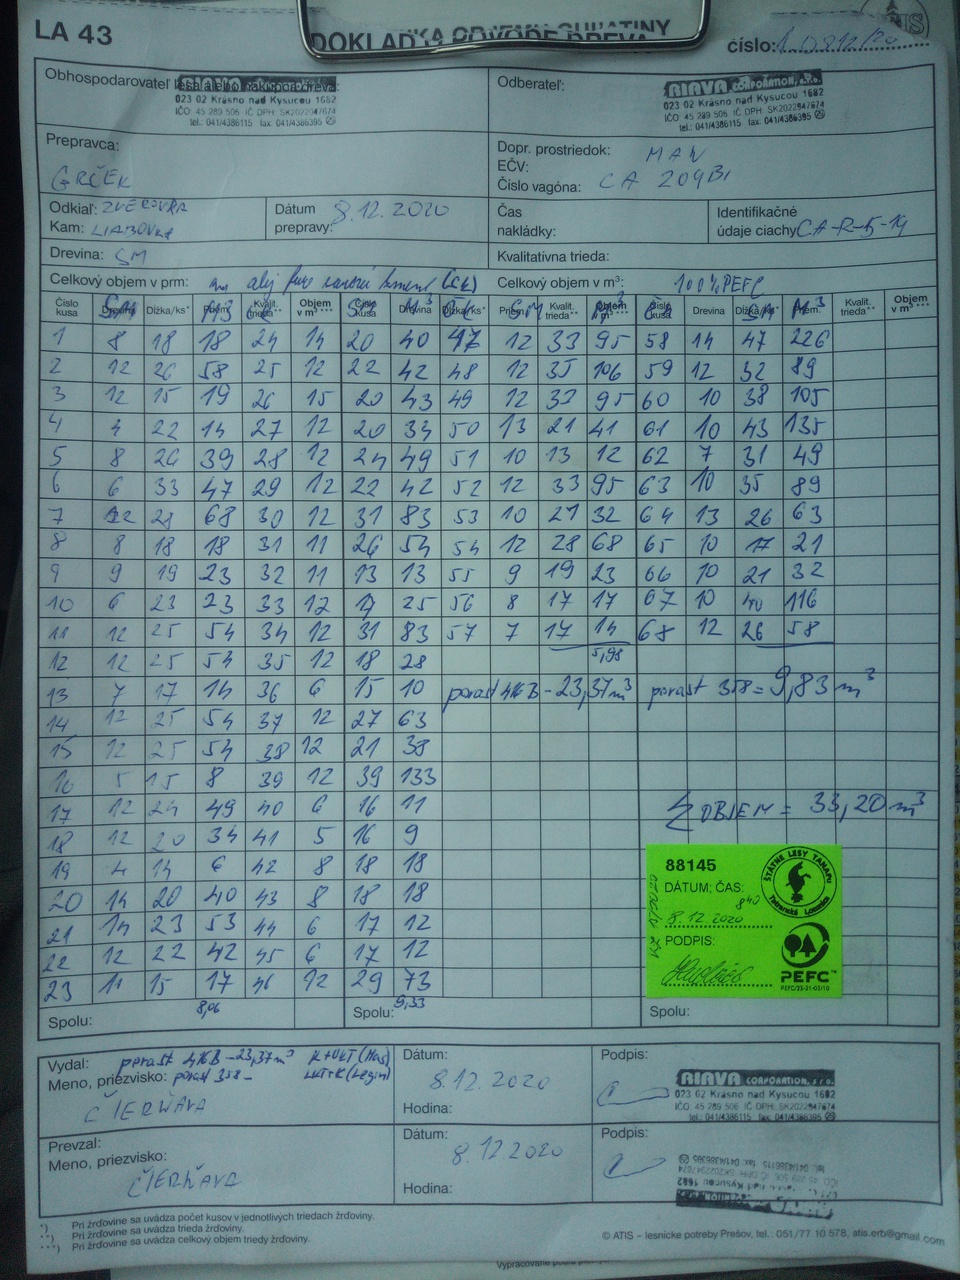 LA 43
DOKLAD O ODVOZE DREVA
číslo:
Obhospodarovateľ lesa alebo nákupca dreva:
RIAVA CORPORATION, s.r.o.
023 02 Krásno nad Kysucou 1682
IČO: 45 289 506 IČ DPH: SK2022947674
tel.: 041/4386115 fax: 041/4386395
Odberateľ:
RIAVA CORPORATION, s.r.o.
023 02 Krásno nad Kysucou 1682
IČO: 45 289 506 IČ DPH: SK2022947674
tel.: 041/4386115 fax: 041/4386395
Prepravca:
GRČEK
Dopr. prostriedok: MAN
EČV:
Číslo vagóna: CA 209BI
Odkiaľ: ZVEROVKA
Kam: LIABOVKA
Dátum prepravy: 8.12.2020
Čas nakládky:
Identifikačné údaje ciachy CA-R-5-14
Drevina: SM
Kvalitatívna trieda:
Celkový objem v prm:
Celkový objem v m³: 100% PEFC
1 8 18 18 24 14 20 40 47 12 33 95 58 14 47 226
2 12 26 58 25 12 22 42 48 12 35 106 59 12 32 89
3 12 15 19 26 15 20 43 49 12 33 95 60 10 38 105
4 4 22 14 27 12 20 34 50 13 21 41 61 10 43 135
5 8 26 39 28 12 24 49 51 10 13 12 62 7 31 49
6 6 33 47 29 12 22 42 52 12 33 95 63 10 35 89
7 12 28 68 30 12 31 83 53 10 21 32 64 13 26 63
8 8 18 18 31 11 26 54 54 12 28 68 65 10 17 21
9 9 19 23 32 11 13 13 55 9 19 23 66 10 21 32
10 6 23 23 33 12 17 25 56 8 17 17 67 10 40 116
11 12 25 54 34 12 31 83 57 7 17 14 68 12 26 58
12 12 25 54 35 12 18 28 5,98
13 7 17 14 36 6 15 10 porast 416B - 23,37m³ porast 358 = 9,83 m³
14 12 25 54 37 12 27 63
15 12 25 54 38 12 21 38
16 5 15 8 39 12 39 133
17 12 24 49 40 6 16 11 Σ OBJEM = 33,20 m³
18 12 20 34 41 5 16 9
19 4 14 6 42 8 18 18
20 14 20 40 43 8 18 18
21 14 23 53 44 6 17 12
22 12 22 42 45 6 17 12
23 11 15 17 46 12 29 73
88145
DÁTUM; ČAS:
8⁴⁰
8.12.2020
PODPIS:
ŠTÁTNE LESY TANAPU
Tatranská Lomnica
PEFC™
PEFC/23-21-03/10
Spolu: 8,06 Spolu: 9,33 Spolu:
Vydal: porast 416B - 23,37m³
Meno, priezvisko: porast 358 -
ČIERŇAVA
Dátum:
8.12.2020
Hodina:
Podpis:
RIAVA CORPORATION, s.r.o.
023 02 Krásno nad Kysucou 1682
IČO: 45 289 506 IČ DPH: SK2022947674
tel.: 041/4386115 fax: 041/4386395
Prevzal:
Meno, priezvisko:
ČIERŇAVA
Dátum:
8.12.2020
Hodina:
Podpis:
*) Pri žrďovine sa uvádza počet kusov v jednotlivých triedach žrďoviny.
**) Pri žrďovine sa uvádza trieda žrďoviny.
***) Pri žrďovine sa uvádza celkový objem triedy žrďoviny.
© ATIS – lesnícke potreby Prešov, tel.: 051/77 10 578, atis.erb@gmail.com